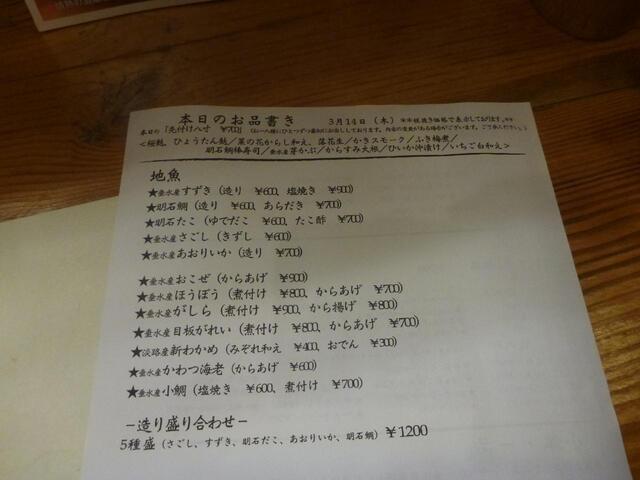 本日のお品書き　3月14日（木）※※税抜き価格で表示しております。※※
本日の「先付け八寸　¥700」（お一人様にひとつずつ最初にお出ししております。内容の変更がある場合がございます。ご了承ください。）
<桜麩、ひょうたん麩／菜の花からし和え、落花生／かきスモーク／ふき梅煮／
明石鯛棒寿司／垂水産芽かぶ／からすみ大根／ひいか沖漬け／いちご白和え>
地魚
★垂水産すずき（造り　¥600、塩焼き　¥900）
★明石鯛（造り　¥600、あらだき　¥700）
★明石たこ（ゆでだこ　¥600、たこ酢　¥700）
★垂水産さごし（きずし　¥600）
★垂水産あおりいか（造り　¥700）
★垂水産おこぜ（からあげ　¥900）
★垂水産ほうぼう（煮付け　¥800、からあげ　¥700）
★垂水産がしら（煮付け　¥900、から揚げ　¥800）
★垂水産目板がれい（煮付け　¥800、からあげ　¥700）
★淡路産新わかめ（みぞれ和え　¥400、おでん　¥300）
★垂水産かわつ海老（からあげ　¥600）
★垂水産小鯛（塩焼き　¥600、煮付け　¥700）
－造り盛り合わせ－
5種盛（さごし、すずき、明石だこ、あおりいか、明石鯛）¥1200